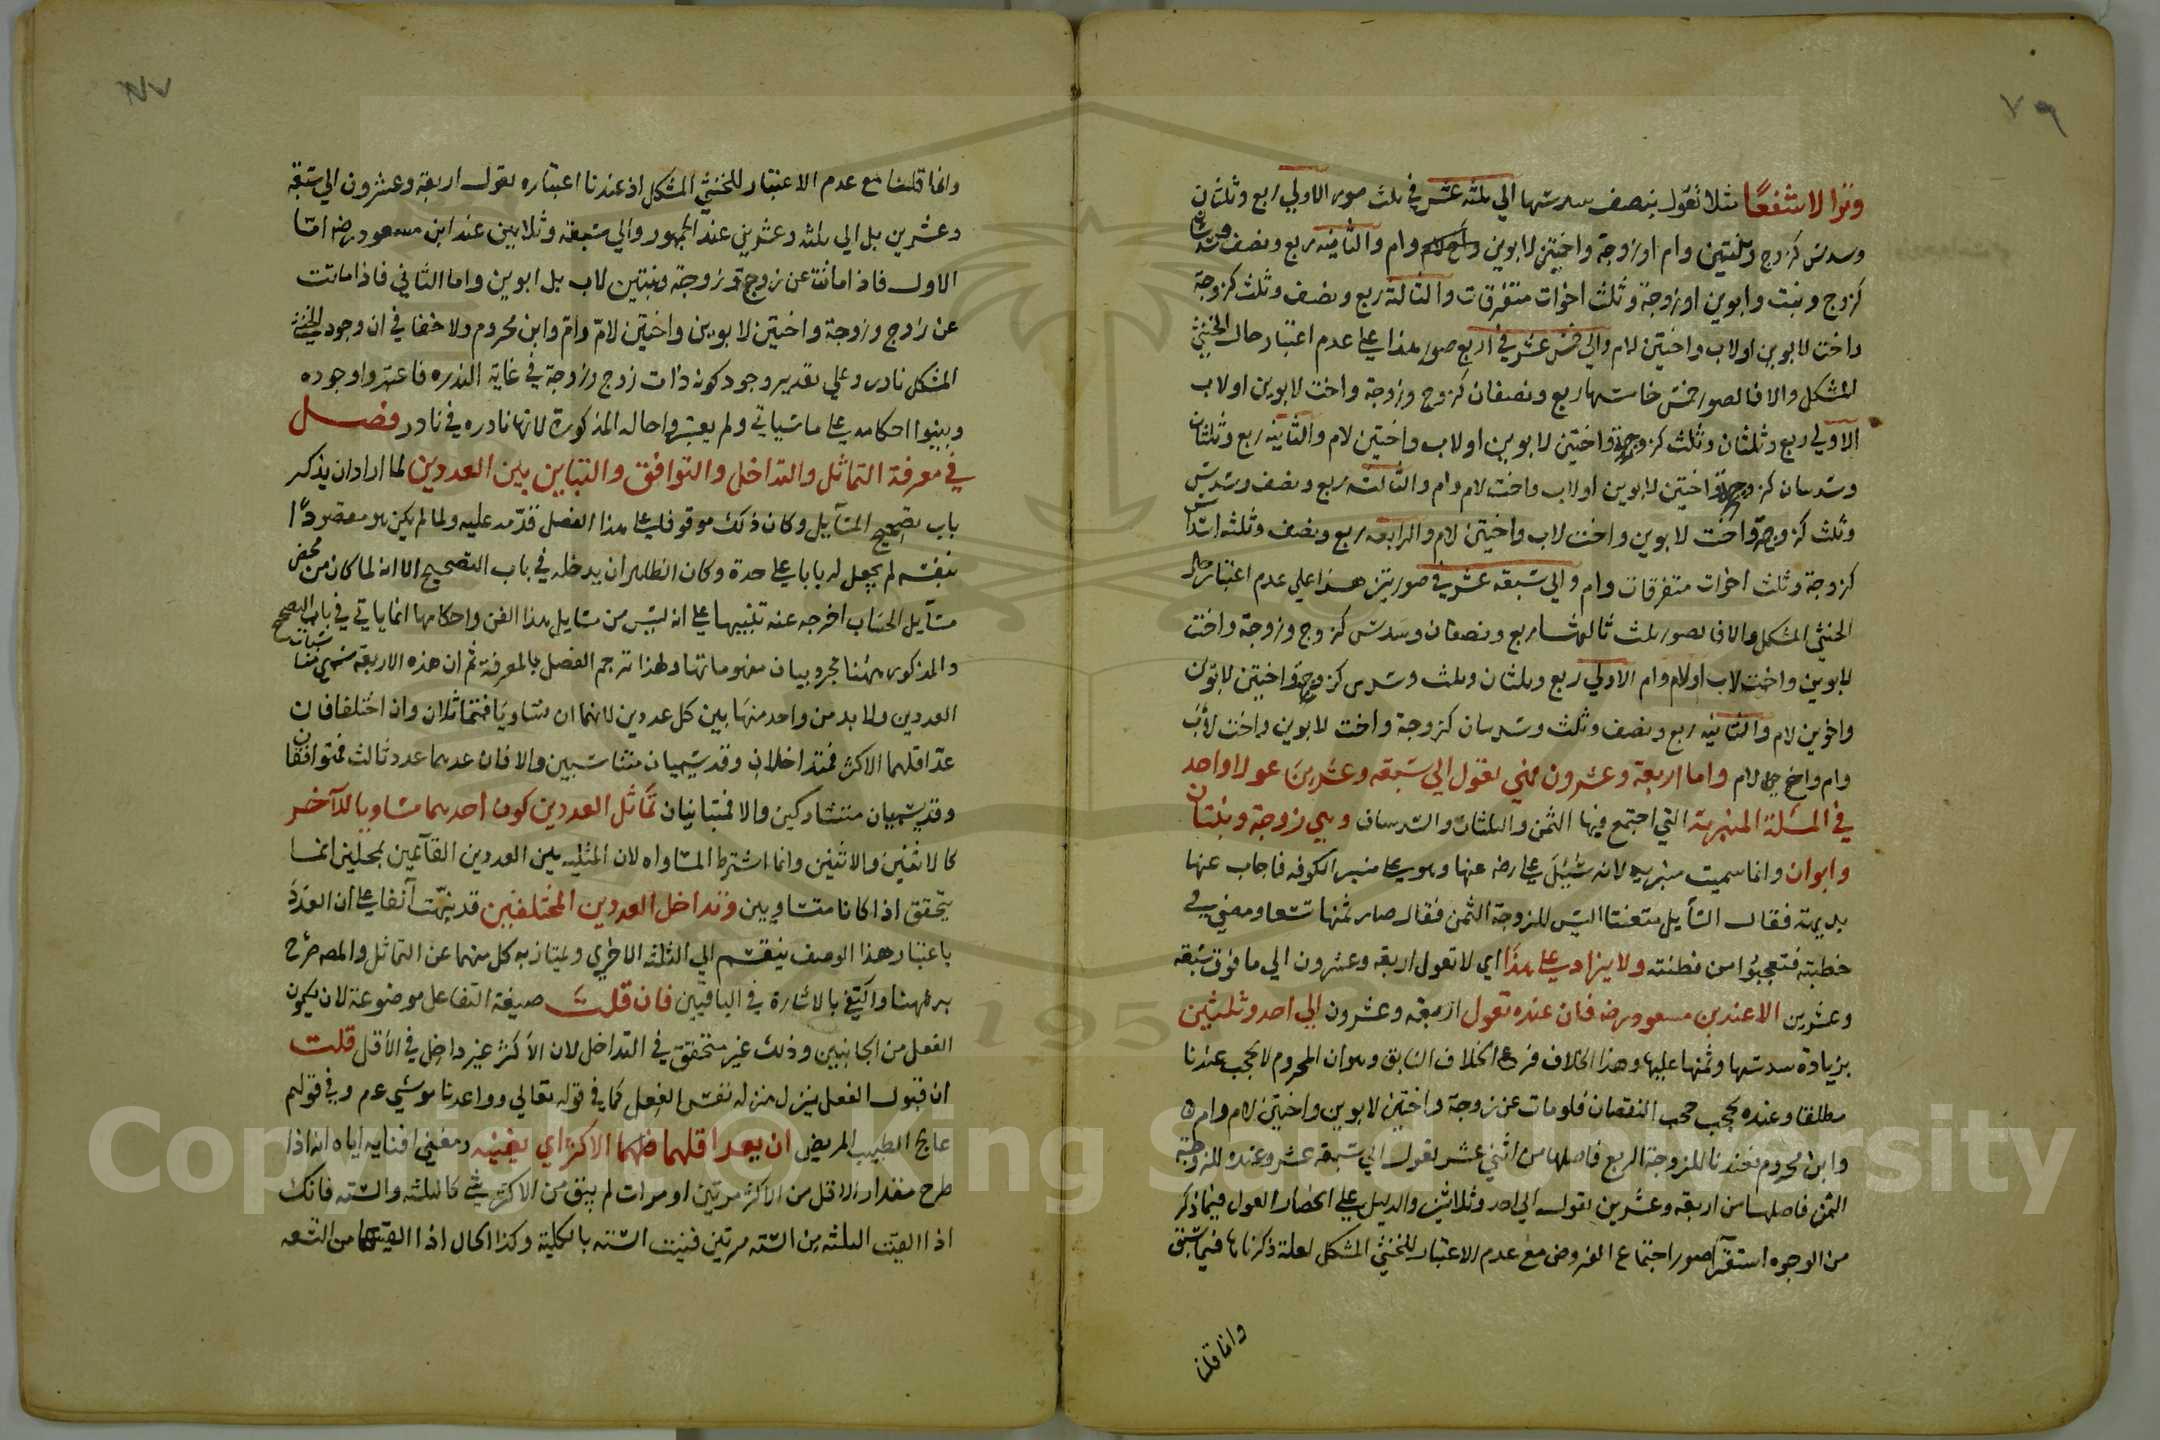 ٧٩
وترا لا شفعًا مثلا تقول بنصف سدسها الي ثلثه عشر في ثلث صور الاولي ربع وثلثان
وسدس كزوج وبنتين وام او زوجة واختين لابوين وام والثانيه ربع ونصف
كزوج وبنت وابوين او زوجة وثلث اخوات متفرقات والثالثة ربع ونصف وثلث كزوجة
واخت لابوين او لاب واختين لام والي خمس عشر في اربع صور هذا علي عدم اعتبار حال الخنثي
المشكل والا فالصور خمس خامستها ربع ونصفان كزوج وزوجة واخت لابوين او لاب
الاولي ربع وثلثان وثلث كزوجة واختين لابوين او لاب واختين لام والثانيه ربع وثلثان
وسدسان كزوجة واختين لابوين او لاب واخت لام وام والثالثه ربع ونصف وسدس
وثلث كزوجة واخت لابوين واخت لاب واختين لام والرابعه ربع ونصف وثلثه اسداس
كزوجة وثلث اخوات متفرقات وام والي سبعه عشر في صورتين هذا علي عدم اعتبار حال
الخنثي المشكل والا فالصور ثلث ثالثها ربع ونصفان وسدس كزوج وزوجة واخت
لابوين واخت لاب او لام وام الاولي ربع وثلثان وثلث وسدس كزوجة واختين لابوين
واخوين لام والثانيه ربع ونصف وثلث وسدسان كزوجة واخت لابوين واخت لاب
وام واخوين لام واما اربعة وعشرون فهي تقول الي سبعه وعشرين عولا واحد
في المسئلة المنبرية التي اجتمع فيها الثمن والثلثان والسدسان وهي زوجة وبنتان
وابوان وانما سميت منبريه لانه سُئِلَ علي رضه عنها وهو علي منبر الكوفه فاجاب عنها
بديهة فقال السآيل متعنتا اليس للزوجة الثمن فقال صار ثمنها تسعا ومضي في
خطبته فتعجبوا من فطنته ولا يزاد علي هذا اي لا تعول اربعه وعشرون الي ما فوق سبعه
وعشرين الا عند ابن مسعود رضه فان عنده تعول اربعه وعشرون الي احد وثلثين
بزيادة سدسها وثمنها عليها وهذا الخلاف فرع الخلاف السابق وهو ان المحروم لا يحجب عندنا
مطلقا وعنده يحجب حجب النقصان فلو مات عن زوجة واختين لابوين واختين لام وام
وابن محروم فعندنا للزوجة الربع فاصلها من اثني عشر تعول الي سبعه عشر وعنده للزوجة
الثمن فاصلها من اربعه وعشرين تعول الي احد وثلاثين والدليل علي انحصار العول فيما ذكر
من الوجوه استقرآ صور اجتماع الفروض مع عدم الاعتبار للخنثي المشكل لعلة ذكرناها فيما سبق
وانما قلنا
وانما قلنا مع عدم الاعتبار للخنثي المشكل اذ عندنا اعتباره تعول اربعة وعشرون الي سبعه
وعشرين بل الي ثلثه وعشرين عند الجمهور والي سبعة وثلاثين عند ابن مسعود رضه امّا
الاول فاذا ماتت عن زوج وزوجة وبنتين لاب بل ابوين واما الثاني فاذا ماتت
عن زوج وزوجة واختين لابوين واختين لامّ وامّ وابن محروم ولا خفا في ان وجود الخنثي
المشكل نادر وعلي تقدير وجود كونه ذات زوج وزوجة في غاية الندره فاعتبروا وجوده
وبينوا احكامه علي ما سياتي ولم يعتبروا حاله المذكورة لانها نادره في نادر فصل
في معرفة التماثل والتداخل والتوافق والتباين بين العددين لما اراد ان يذكر
باب تصحيح المسآيل وكان ذلك موقوفا علي هذا الفصل قدّمه عليه ولما لم يكن هو مقصودًا
بنفسه لم يجعل له بابا علي حدة وكان الظاهر ان يدخله في باب التصحيح الا انه لما كان من محض
مسآيل الحساب اخرجه عنه تنبيها علي انه ليس من مسايل هذا الفن واحكامها انما ياتي في باب التصحيح
والمذكور ههنا مجرد بيان مفهوماتها ولهذا ترجم الفصل بالمعرفة ثم ان هذه الاربعة
العددين ولا بد من واحد منها بين كل عددين لانهما ان تساويا فتماثلان وان اختلفا فان
عدّ اقلهما الاكثر فمتداخلان وقد يسميان متناسبين والا فان عدهما عدد ثالث فمتوافقان
وقد يسميان متشاركين والا فمتباينان تماثل العددين كون احدهما مساويا للآخر
كالاثنين والاثنين وانما اشترط المساواه لان المثليه بين العددين القآئمين بمحلين انما
يتحقق اذا كانا متساويين وتداخل العددين المختلفين قد نبهت آنفا علي ان العدد
باعتبار هذا الوصف ينقسم الي الثلثه الاخري وليمتاز به كل منهما عن التماثل والمصه صرح
به ههنا واكتفي بالاشارة في الباقيين فان قلت صيغة التفاعل موضوعة لان يكون
الفعل من الجانبين وذلك غير متحقق في التداخل لان الاكثر غير داخل في الاقل قلت
ان قبول الفعل ينزل منزله نفس الفعل كما في قوله تعالي وواعدنا موسي عم وفي قولهم
عالج الطبيب المريض ان يعد اقلهما الاكثر اي يفنيه ومعني افنايه اياه انه اذا
طرح مقدار الاقل من الاكثر مرتين او مرات لم يبق من الاكثر شي كالثلثه والسته فانك
اذا القيت الثلثه من السته مرتين فنيت السته بالكلية وكذا الحال اذا القيتها من التسعه
Copyright © King Saud University
1957